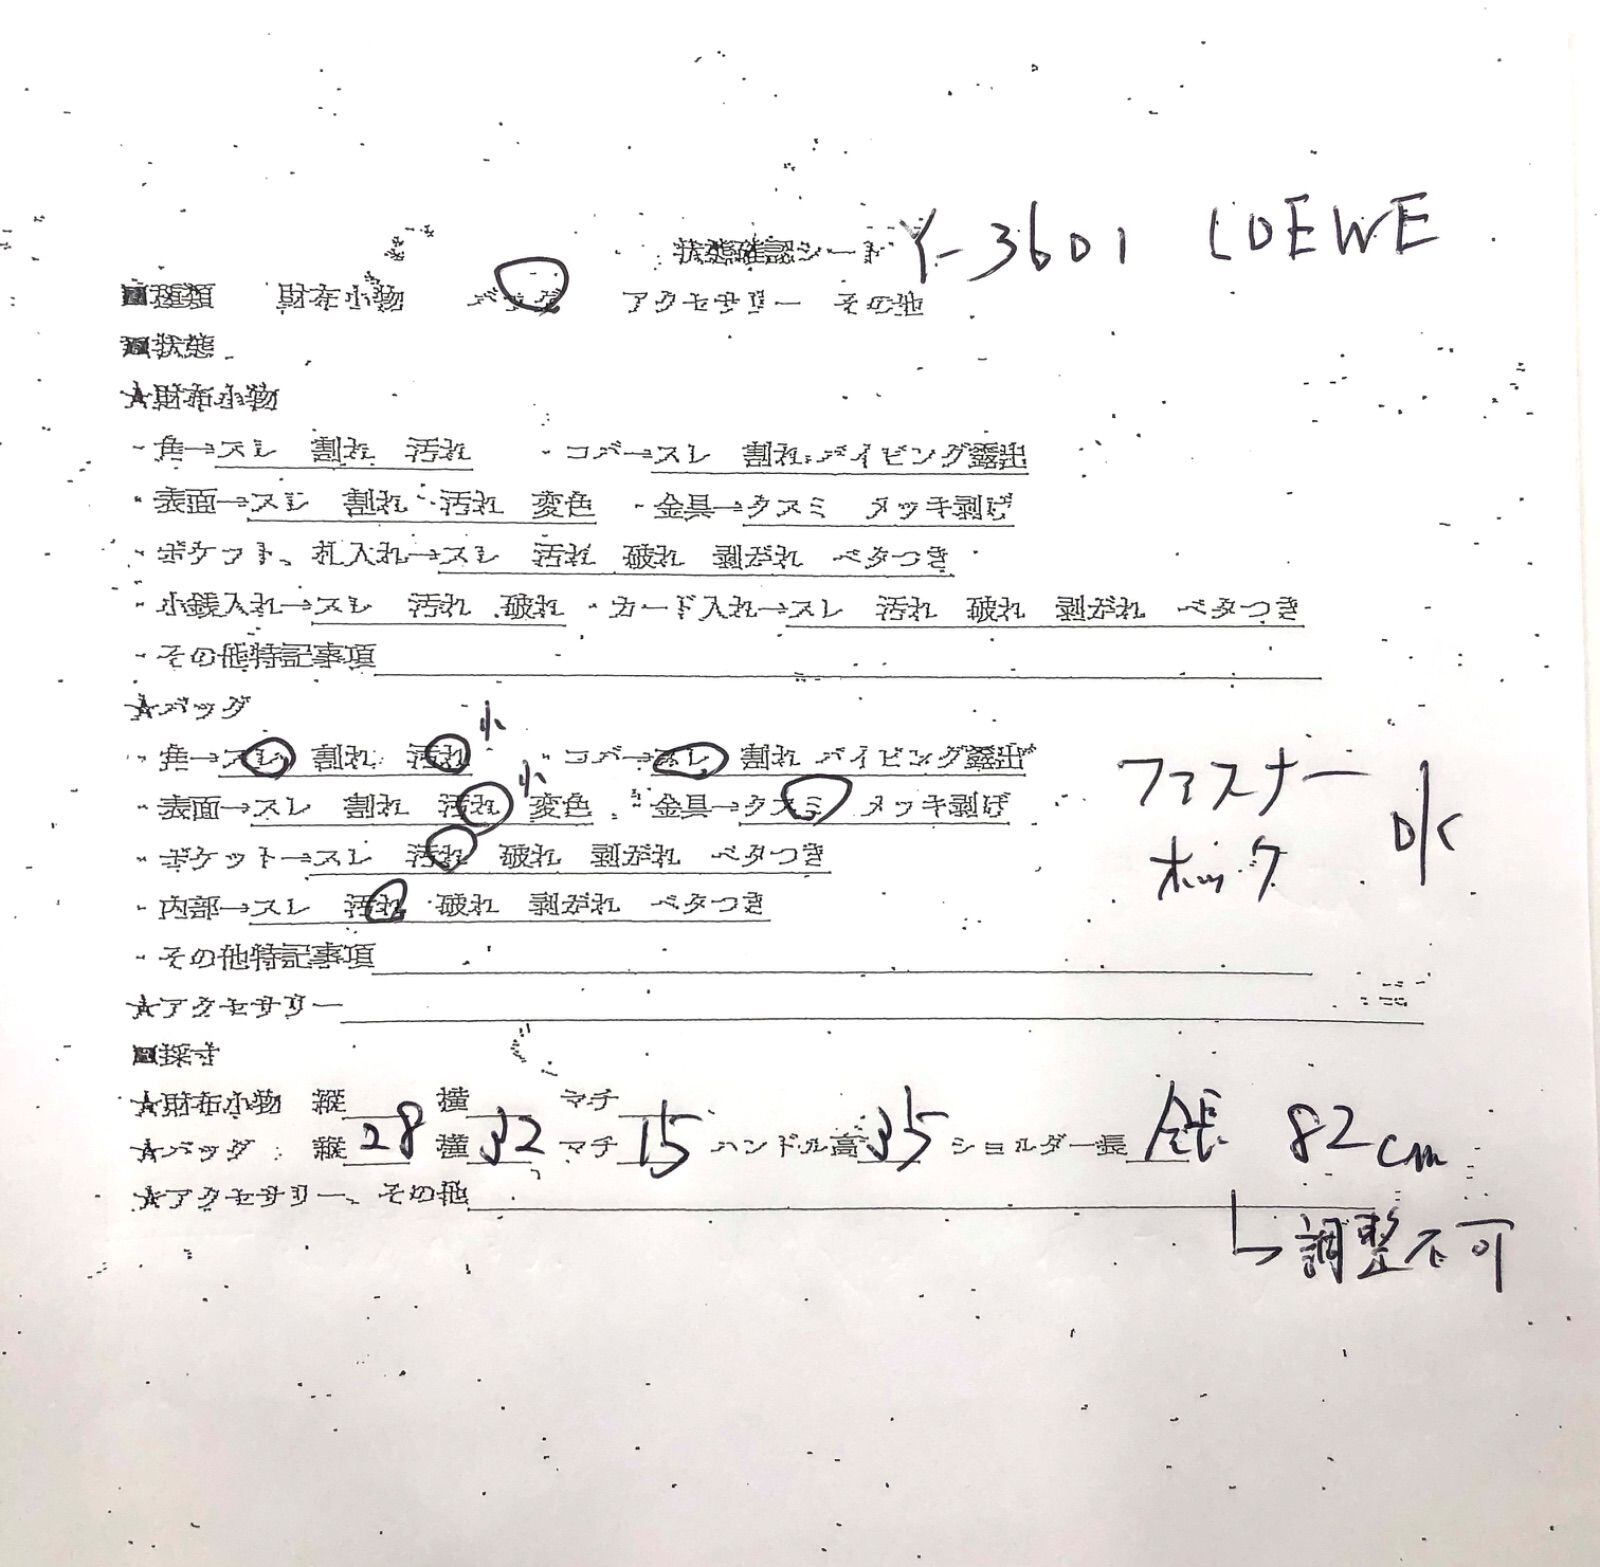 状態確認シート Y-3601 LOEWE
■種類 財布小物 バッグ アクセサリー その他
■状態
★財布小物
・角→スレ 割れ 汚れ ・コバ→スレ 割れ パイピング露出
・表面→スレ 割れ 汚れ 変色 ・金具→クスミ メッキ剥げ
・ポケット、札入れ→スレ 汚れ 破れ 剥がれ ベタつき
・小銭入れ→スレ 汚れ 破れ ・カード入れ→スレ 汚れ 破れ 剥がれ ベタつき
・その他特記事項
★バッグ
・角→スレ 割れ 汚れ 小 ・コバ→スレ 割れ パイピング露出
・表面→スレ 割れ 汚れ 小 変色 ・金具→クスミ メッキ剥げ
・ポケット→スレ 汚れ 破れ 剥がれ ベタつき
・内部→スレ 汚れ 破れ 剥がれ ベタつき
ファスナー
ホック OK
・その他特記事項
★アクセサリー
■採寸
★財布小物 縦 横 マチ
★バッグ 縦 28 横 32 マチ 15 ハンドル高 35 ショルダー長 全長 82cm
★アクセサリー、その他
↳調整不可